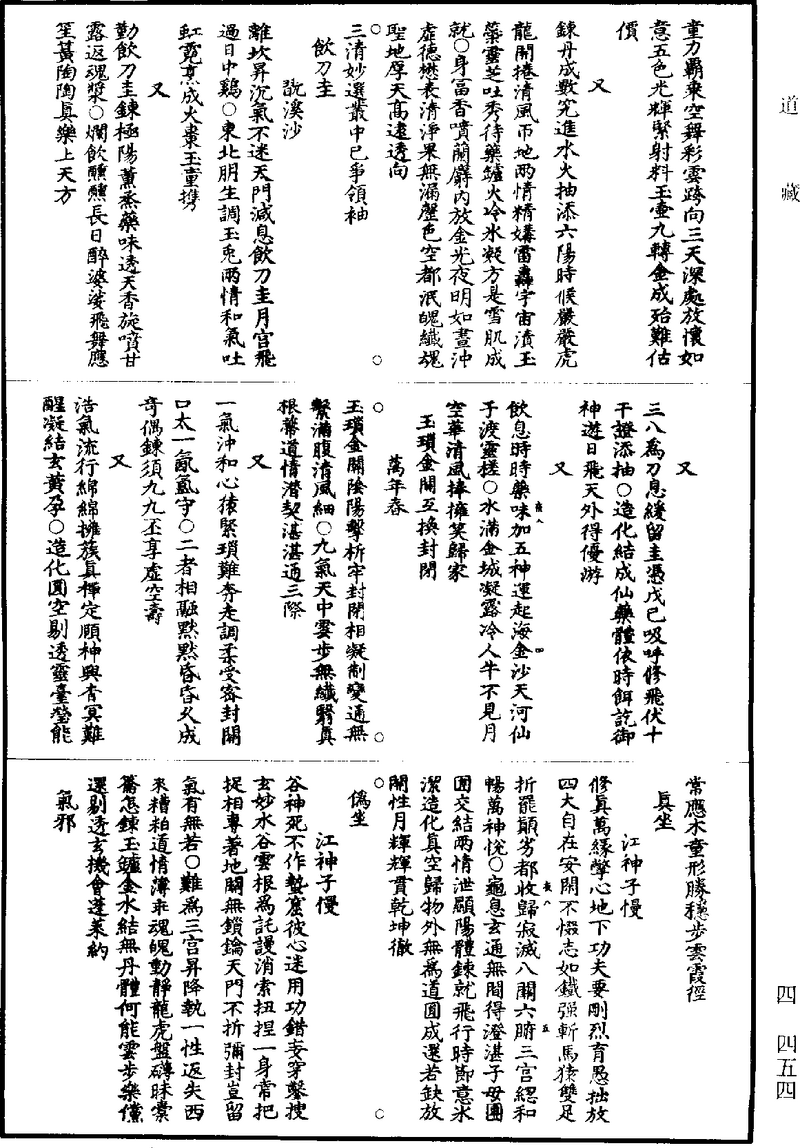 道藏
童力霸乘空舞彩雲跨向三天深處放懷如
意五色光輝緊射料玉壺九轉金成殆難估
價
又
鍊丹成數究進水火抽添六陽時候嚴嚴虎
龍開捲清風帀地兩情精媾雷轟宇宙漬玉
蘂靈芝吐秀待藥鑪火冷水凝方是雪肌成
就○身畐香噴蘭麝內放金光夜明如晝沖
虛德懋表清淨果無漏歷色空都泯魄纖魂
聖地厚天高遠透向
三清妙選叢中已爭領袖
○ ○
飲刀圭
翫溪沙
離坎昇沉氣不迷天門減息飲刀圭月宮飛
過日中鷄○東北朋生調玉兎兩情和氣吐
虹霓烹成火棗玉童擕
又
勤飲刀圭鍊極陽薰烝藥味透天香旋噴甘
露返魂漿○爛飲醺醺長日醉婆娑飛舞應
笙簧陶陶真樂上天方
又
三八為刀息緩留圭憑戊己吸呼修飛伏十
干證添抽○造化結成仙藥體依時餌訖御
神遊日飛天外得優游
又
飲息時時藥味加五神運起海金沙天河仙
子渡靈槎○水滿金城凝露冷人牛不見月
空華清風捧擁笑歸家
玉瑣金關互換封閉
萬年春
○ ○
玉瑣金關陰陽擊柝牢封閉相凝制變通無
繫滿腹清風細○九氣天中雲步無纖翳真
根蔕道情潛契湛湛通三際
又
一氣沖和心猿緊瑣難奔走調柔受密封關
口太一氤氳守○二者相融黙黙昏昏久成
奇偶鍊須九九丕享虛空壽
又
浩氣流行綿綿擁蔟真禪定頤神興杳冥難
醒凝結玄黃孕○造化圓空剔透靈臺瑩能
常應木童形勝穩步雲霞徑
真坐
江神子慢
修真萬緣擎心地下功夫要剛烈育愚拙放
四大自在安閑不惙志如鐵强斬馬猿雙足
折罷顓劣都收歸寂滅八關六腑三宮緫和
暢萬神悅○龜息玄通無間得澄湛子母團
圓交結兩情泄顯陽體鍊就飛行時節意氷
潔造化真空歸物外無為道圓成還若缺放
開性月輝輝貫乾坤徹
○ ○
偽坐
江神子慢
谷神死不作蟄窟彼心迷用功錯妄穿鑿搜
玄妙水谷雲根為託謾消索扭捏一身常把
捉相專著地關無鎖鑰天門不折彌封豈留
氣有無若○難為三宮昇降執一性返失西
來糟粕道情薄乖魂魄動靜龍虎盤礡昧棠
籥怎鍊玉鑪金水結無丹體何能雲步樂儻
還剔透玄機會蓬萊約
氣邪
四 四五四